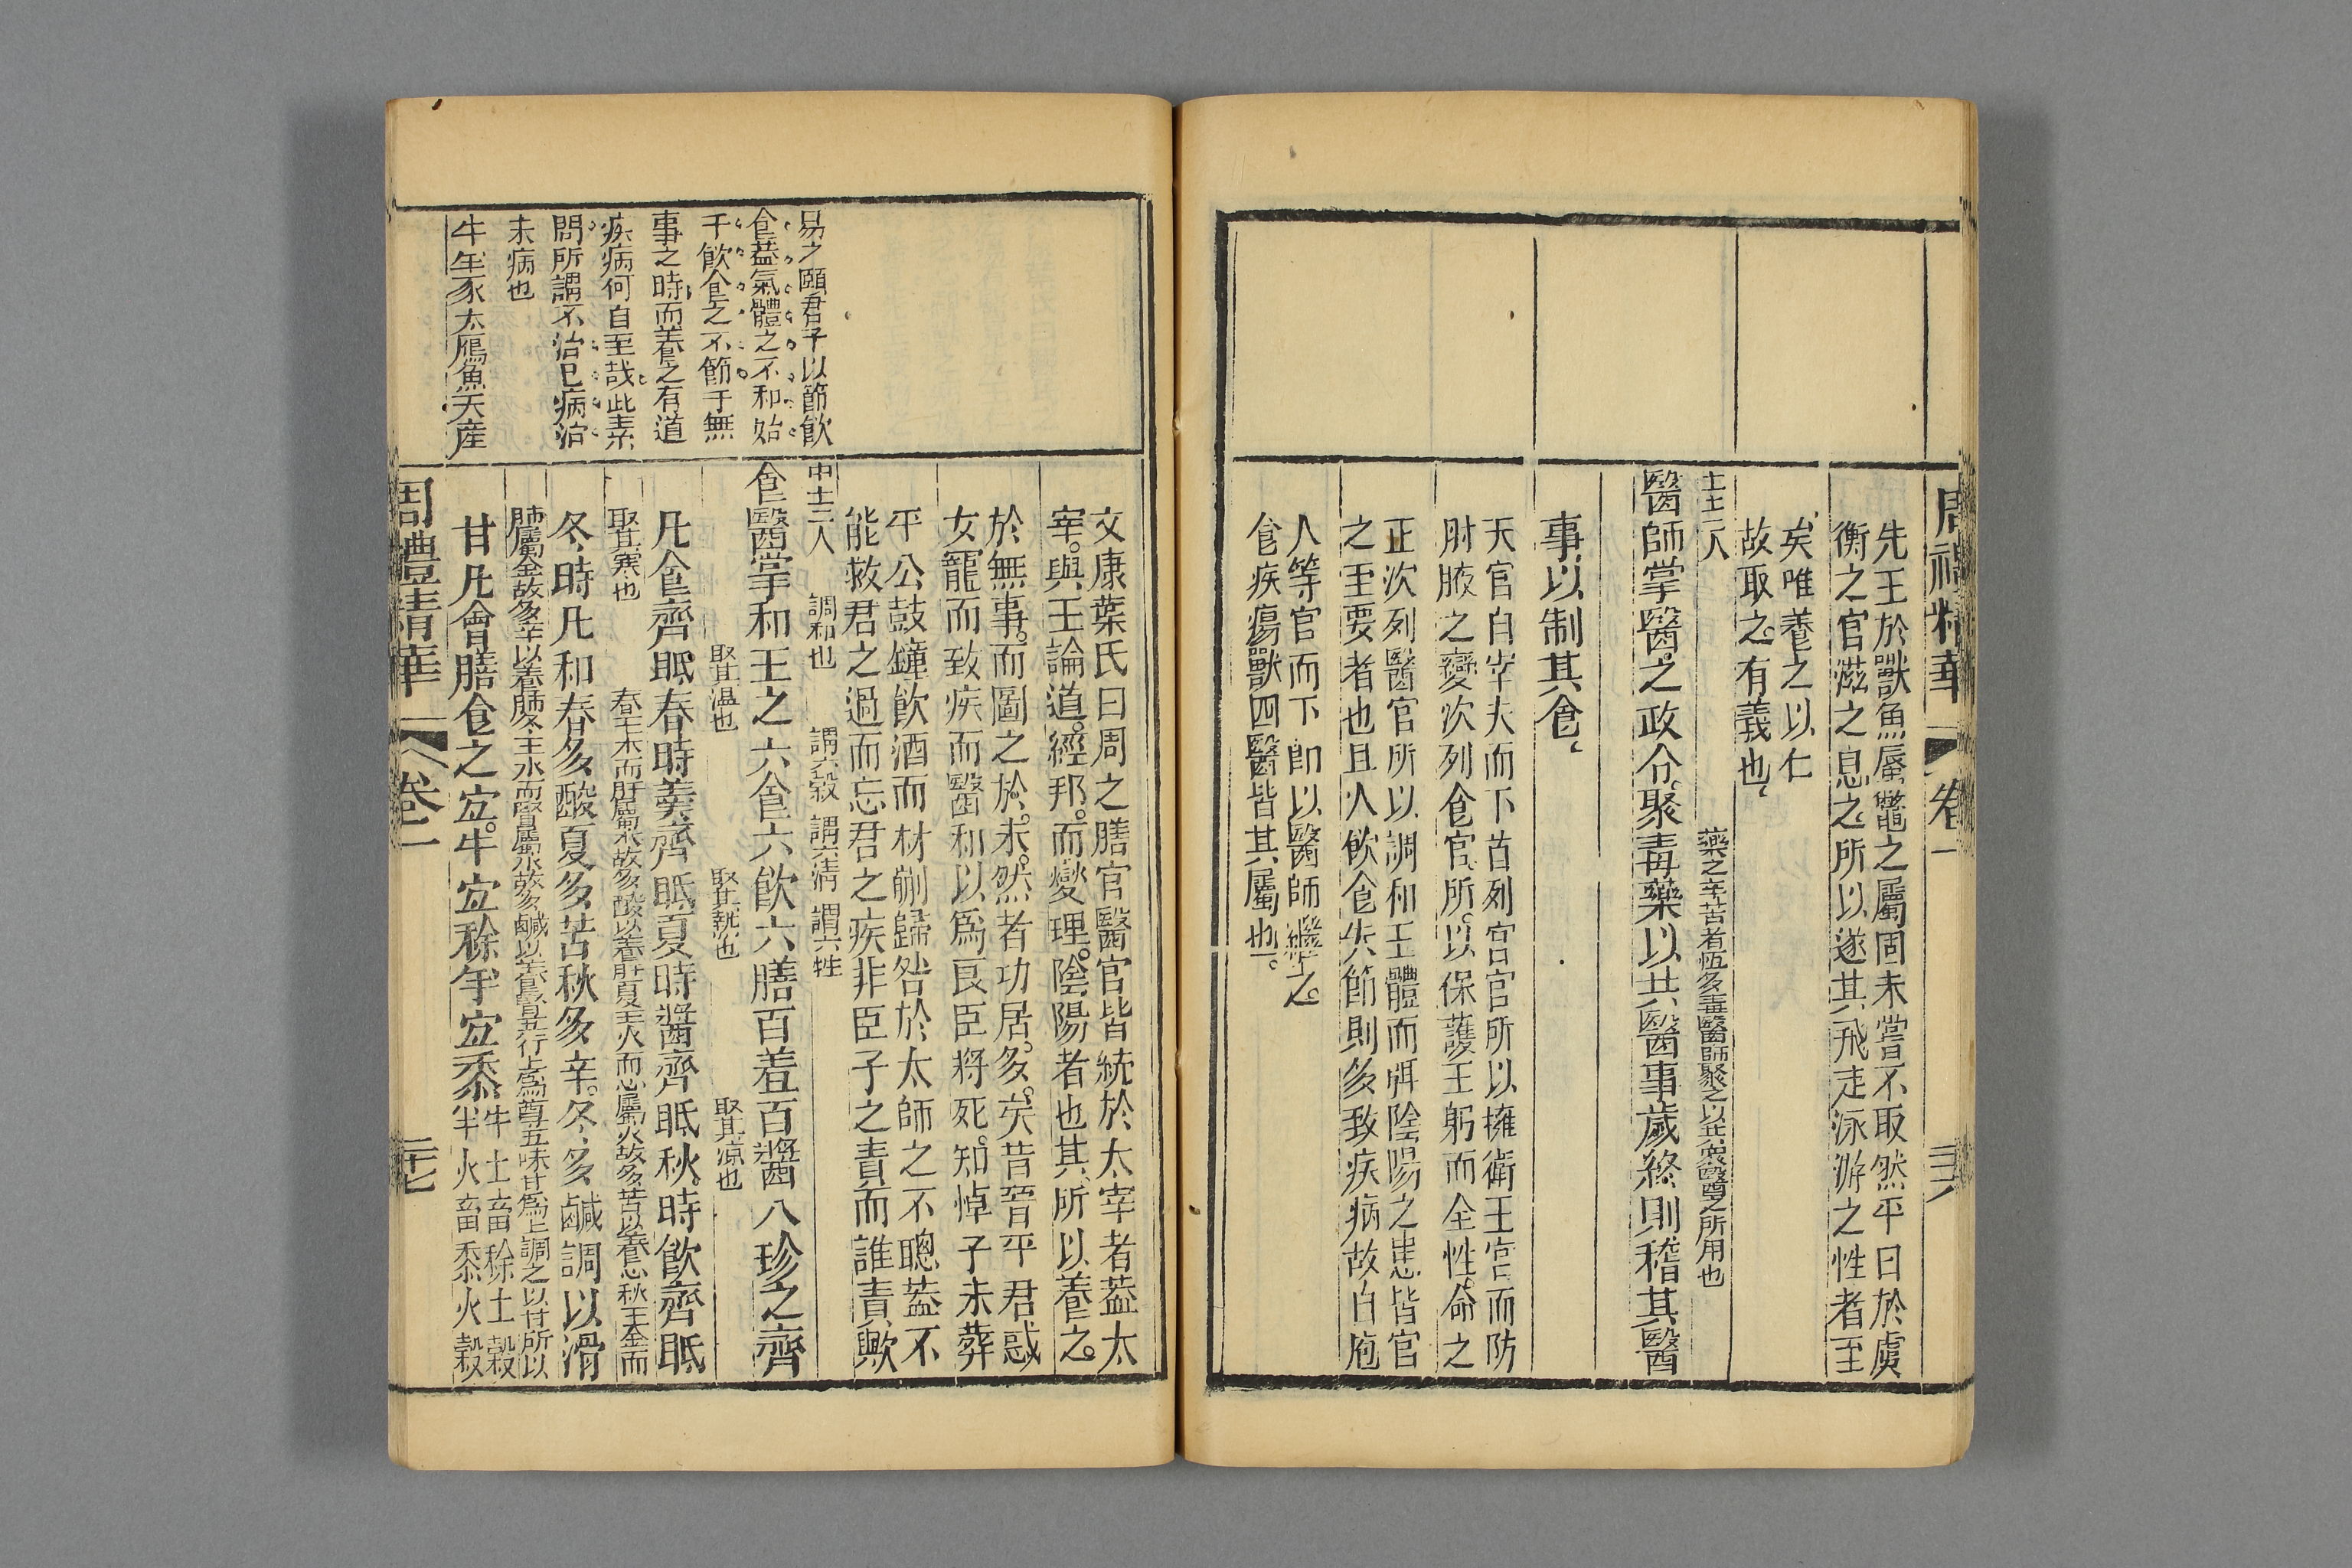 周禮精華
卷一
三十六
先王於獸魚蜃鼈之屬固未嘗不取然平日於虞
衡之官滋之息之所以遂其飛走泳游之性者至
矣唯養之以仁
故取之有義也
上士二人
藥之辛苦者恆多毒醫師聚之以共衆醫之所用也
醫師掌醫之政令聚毒藥以共醫事歲終則稽其醫
事以制其食
天官自宰夫而下首列宮官所以擁衛王宮而防
肘腋之變次列食官所以保護王躬而全性命之
正次列醫官所以調和王體而弭陰陽之患皆官
之至要者也且人飲食失節則多致疾病故自庖
人等官而下卽以醫師繼之
食疾瘍獸四醫皆其屬也
文康葉氏曰周之膳官醫官皆統於太宰者葢太
宰與王論道經邦而燮理陰陽者也其所以養之
於無事而圖之於未然者功居多矣昔晉平君惑
女寵而致疾而醫和以爲良臣將死知悼子未葬
平公鼓鐘飲酒而杜蒯歸咎於太師之不聰葢不
能救君之過而忘君之疾非臣子之責而誰責歟
易之頤君子以節飲
食葢氣體之不和始
于飲食之不節于無
事之時而養之有道
疾病何自至哉此素
問所謂不治已病治
未病也
中士二人
調和也
謂六穀
謂六清
謂六牲
食醫掌和王之六食六飲六膳百羞百醬八珍之齊
取其溫也
取其熱也
取其涼也
凡食齊眡春時羹齊眡夏時醬齊眡秋時飲齊眡
取其寒也
春王木而肝屬木故多酸以養肝夏王火而心屬火故多苦以養心秋王金而
冬時凡和春多酸夏多苦秋多辛冬多鹹調以滑
肺屬金故多辛以養肺冬王水而腎屬水故多鹹以養腎五行土爲尊五味甘爲上調之以甘所以
牛羊豕犬鴈魚天產
甘凡會膳食之宜牛宜稌羊宜黍
牛土畜稌土穀
羊火畜黍火穀
周禮精華
卷一
三十七